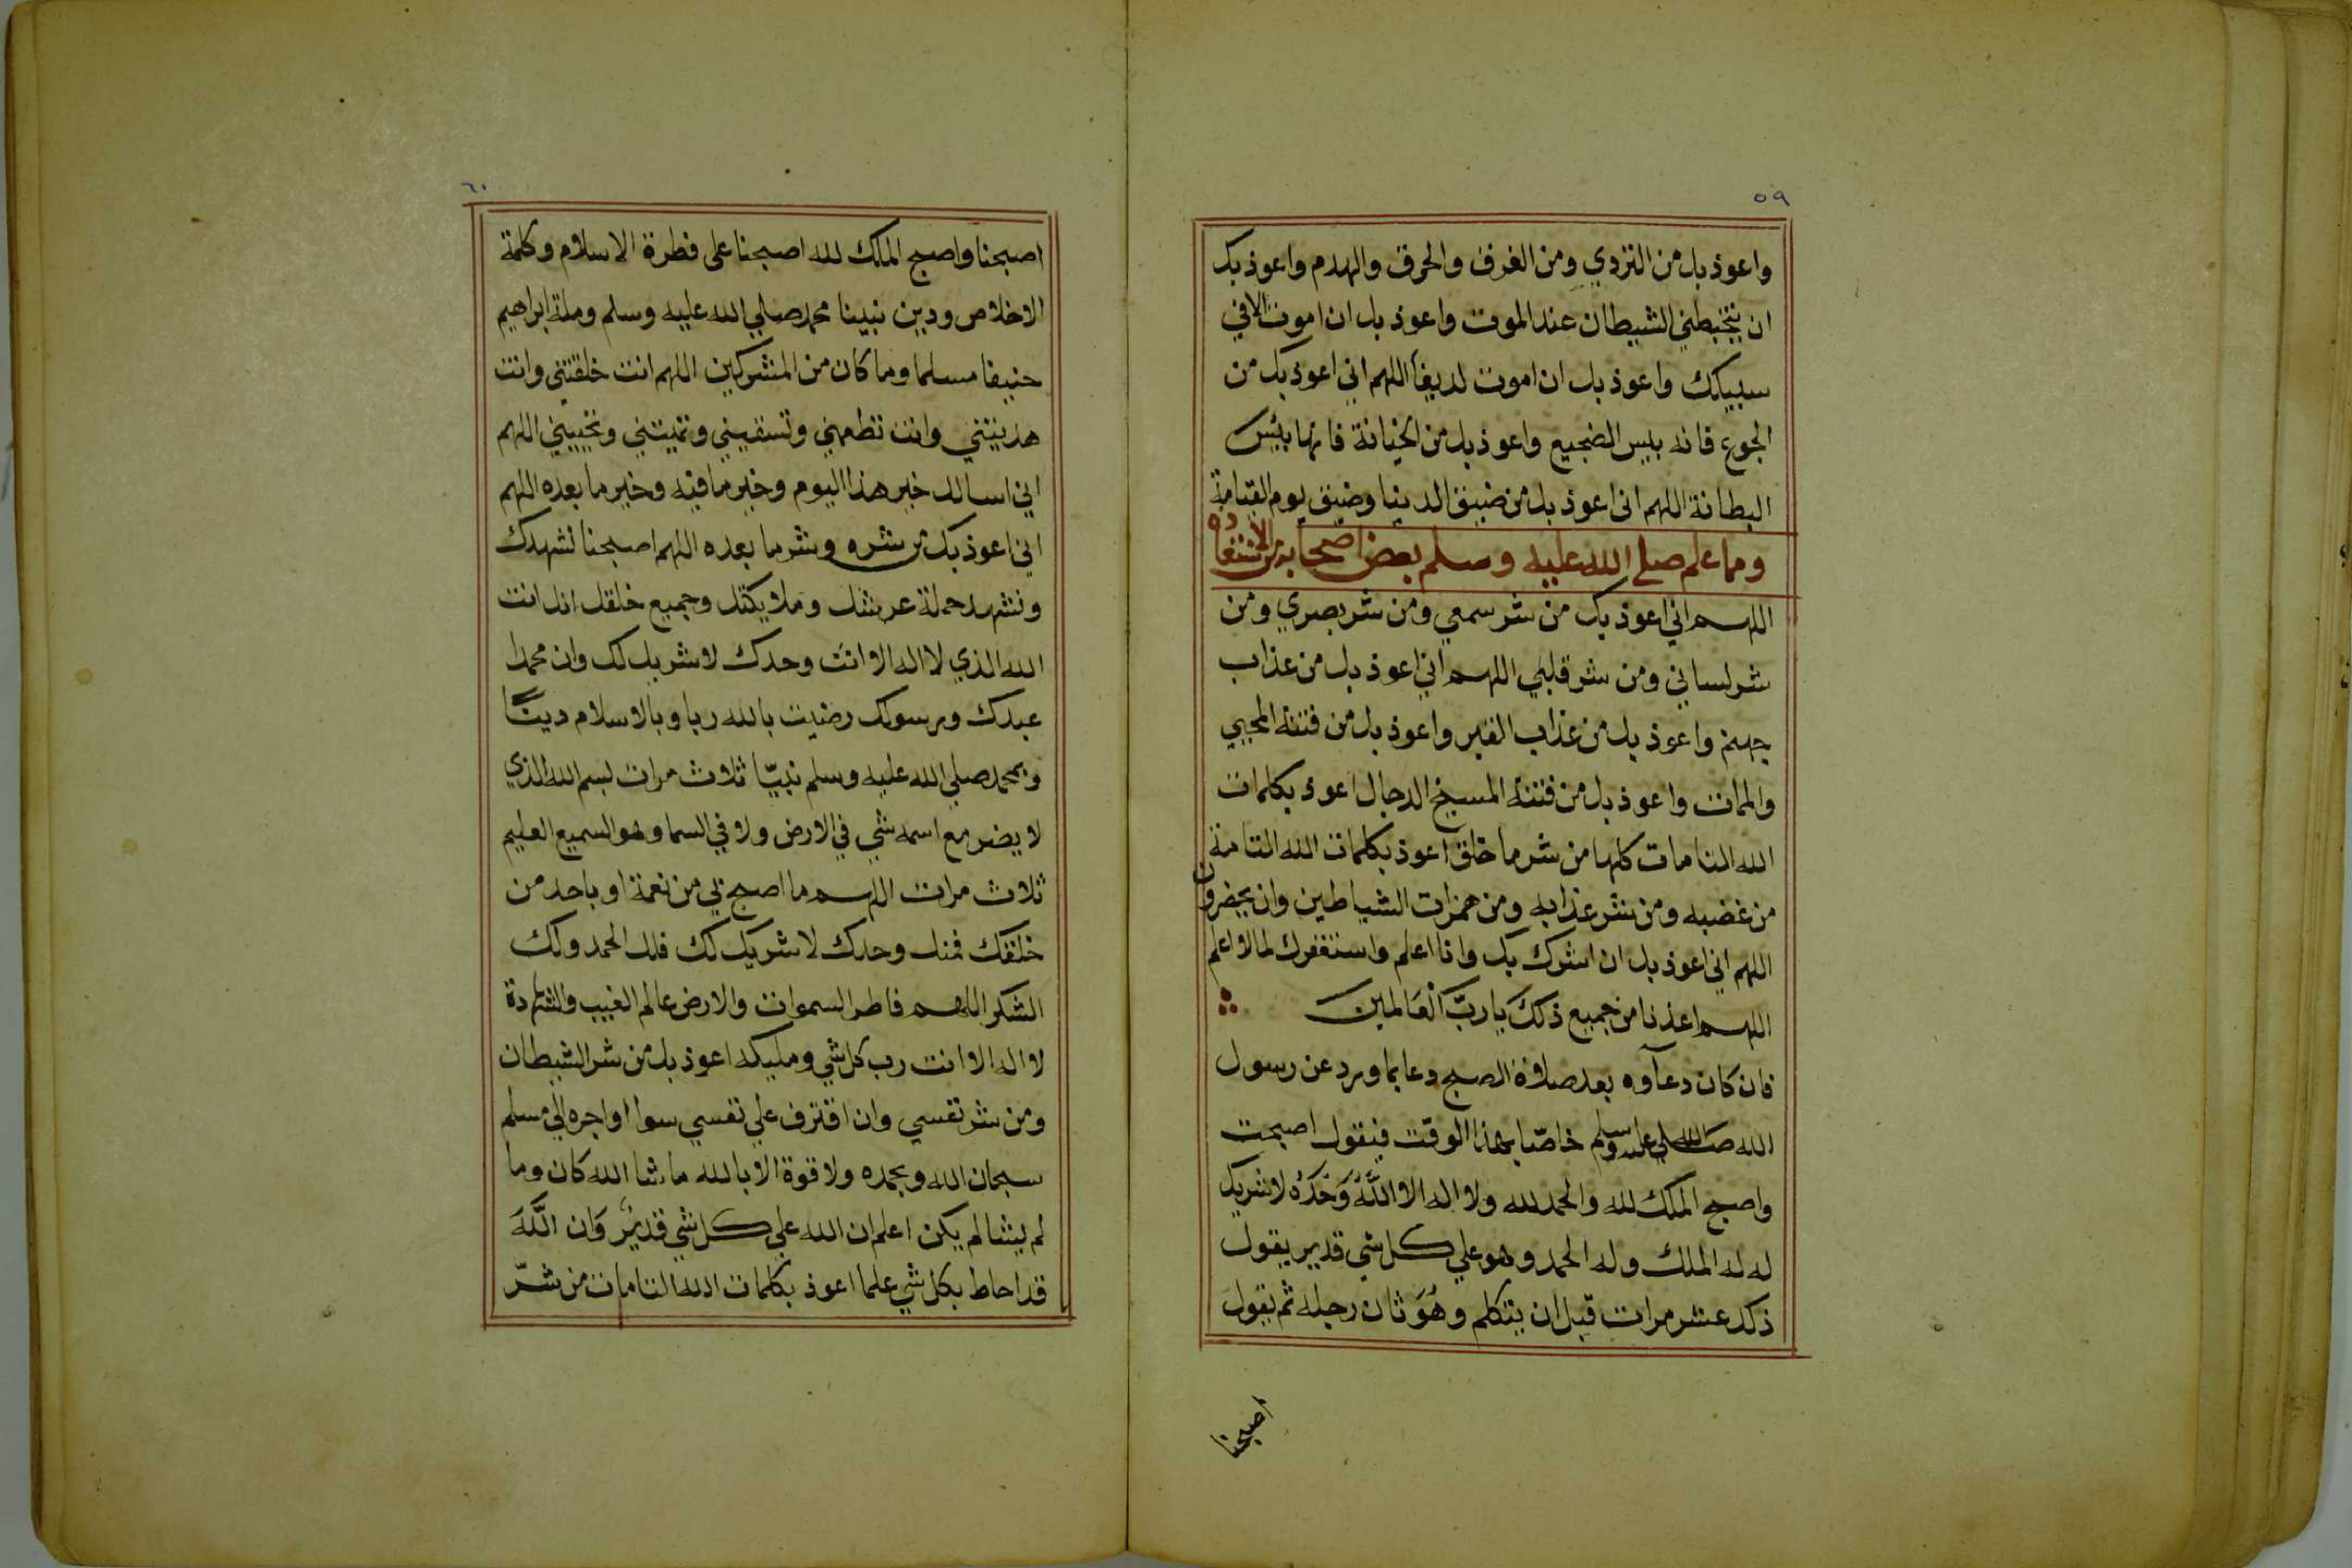 ٥٩
واعوذ بك من التردي ومن الغرق والحرق والهدم واعوذ بك
ان يتخبطني الشيطان عند الموت واعوذ بك ان اموت لافي
سبيلك واعوذ بك ان اموت لديغا اللهم اني اعوذ بك من
الجوع فانه بيس الضجيع واعوذ بك من الخيانة فانها بئس
البطانة اللهم اني اعوذ بك من ضيق الدينا وضيق يوم القيامة
ومما علم صلى الله عليه وسلم بعض اصحابه من الاستعاذه
اللهم اني اعوذ بك من شر سمعي ومن شر بصري ومن
شر لساني ومن شر قلبي اللهم اني اعوذ بك من عذاب
جهنم واعوذ بك من عذاب القبر واعوذ بك من فتنة المحيي
والممات واعوذ بك من فتنة المسيخ الدجال اعوذ بكلمات
الله التامات كلها من شر ما خلق اعوذ بكلمات الله التامة
من غضبه ومن شر عذابه ومن همزات الشياطين وان يحضرون
اللهم اني اعوذ بك ان اشرك بك وانا اعلم واستغفرك لما لا اعلم
اللهم اعذنا من جميع ذلك يا ربَّ الْعَالمين
فان كان دعآوه بعد صلاة الصبح دعا بما ورد عن رسول
الله صلى الله عليه وسلم خاصّا بهذا الوقت فيقول اصبحت
واصبح الملك لله والحمد لله ولا اله الا اللَّهُ وَحْدَهُ لا شريك
له له الملك وله الحمد وهو علي كل شي قدير يقول
ذلك عشر مرات قبل ان يتكلم وهُوَ ثان رجله ثم يقول
اصبحنا
٦٠
اصبحنا واصبح الملك لله اصبحنا على فطرة الاسلام وكلمة
الاخلاص ودين نبينا محمد صلي الله عليه وسلم وملة ابراهيم
حنيفا مسلما وما كان من المشركين اللهم انت خلقتني وانت
هديتني وانت تطعمني وتسقيني وتميتني وتحييني اللهم
اني اسالك خير هذا اليوم وخير ما فيه وخير ما بعده اللهم
اني اعوذ بك من شره وشر ما بعده اللهم اصبحنا نشهدك
ونشهد حملة عرشك وملايكتك وجميع خلقك انك انت
الله الذي لا اله الا انت وحدك لا شريك لك وان محمدا
عبدك ورسولك رضيت بالله ربا وبالاسلام دينًا
وبمحمد صلي الله عليه وسلم نبيّا ثلاث مرات بسم الله الذي
لا يضر مع اسمه شي في الارض ولا في السما وهو السميع العليم
ثلاث مرات اللهم ما اصبح بي من نعمة او باحد من
خلقك فمنك وحدك لا شريك لك فلك الحمد ولك
الشكر اللهم فاطر السموات والارض عالم الغيب والشهادة
لا اله الا انت رب كل شي ومليكه اعوذ بك من شر الشيطان
ومن شر نفسي وان اقترف علي نفسي سوا او اجره الي مسلم
سبحان الله وبحمده ولا قوة الا بالله ما شا الله كان وما
لم يشا لم يكن اعلم ان الله علي كل شي قديرٌ وَان اللَّهَ
قد احاط بكل شي علما اعوذ بكلمات الله التامات من شرّ